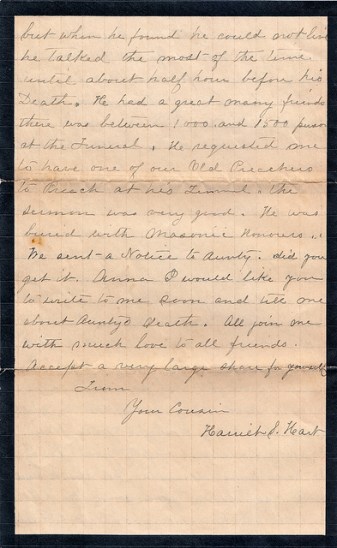 but when he found he could not live
he talked the most of the time
until about half hour before his
Death. He had a great many friends
there was between 1000 and 1500 person
at the Funeral. He requested me
to have one of our Old Preachers
to Preach at his Funeral. the
sermon was very good. He was
buried with Masonic Honours.
We sent a Notice to Aunty. did you
get it. Anna I would like you
to write to me soon and tell me
about Auntys Death. All join me
with much love to all friends.
Accept a very large share for yourself
From
Your Cousin
Harriet J. Hart